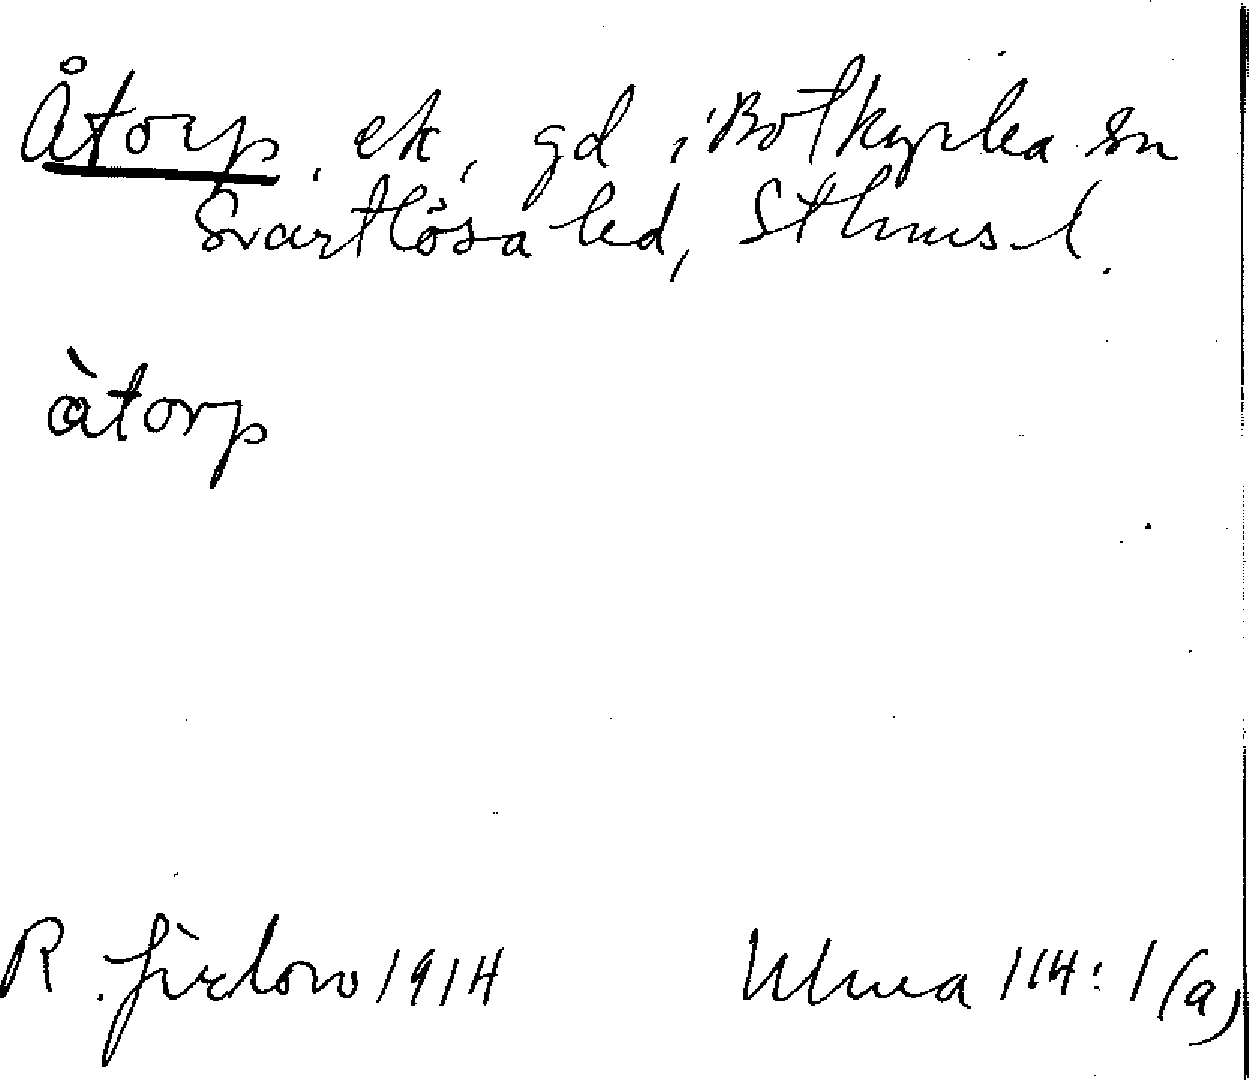 Åtorp, ek, gd i Botkyrka sn
Svartlösa hd, Sthms l.
àtorp
R. 1914 Ulma 114:1(a)